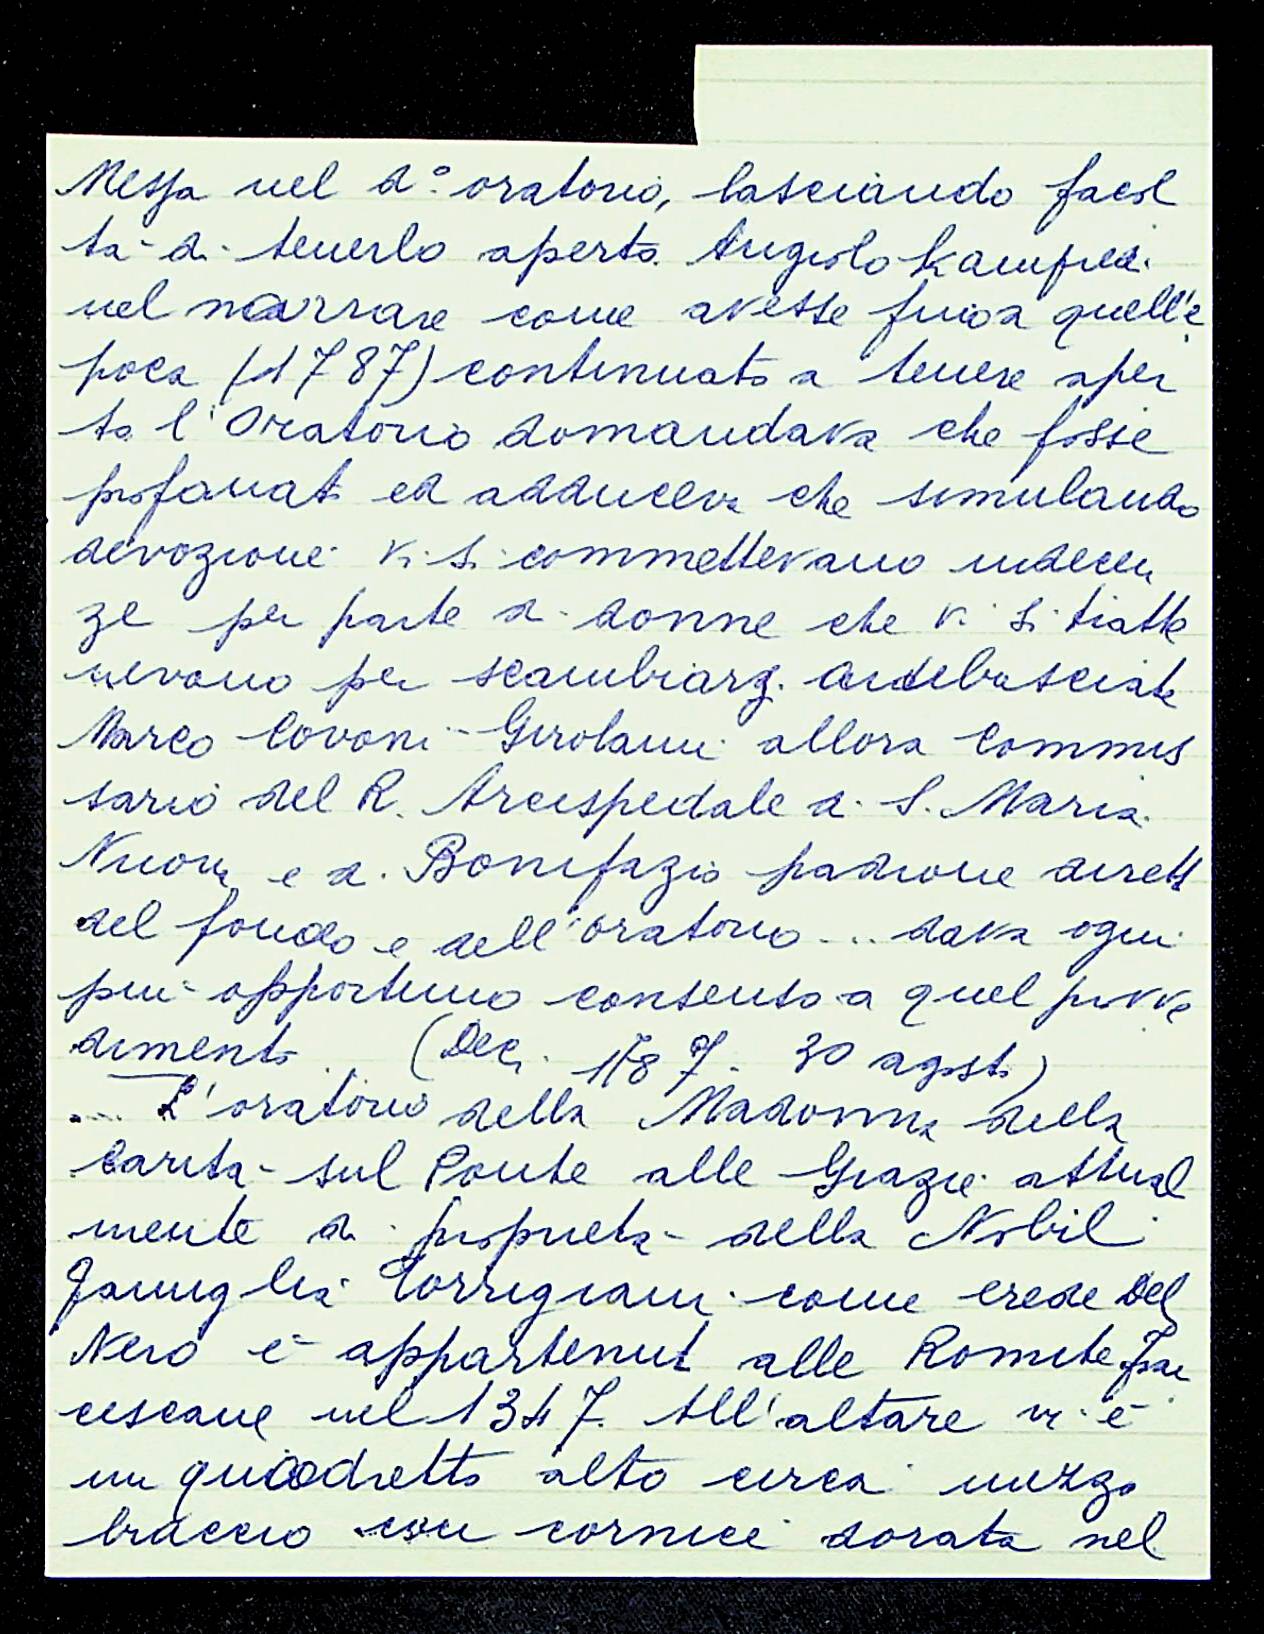 Messa nel d.° oratorio, lasciando facol
tà di tenerlo aperto. Angiolo
nel narrare come avesse fino a quell'e
poca (1787) continuato a tenere aper
to l'Oratorio domandava che fosse
profanato ed adduceva che simulando
devozione vi si commettevano indecen
ze per parte di donne che vi si tratte
nevano per scambiarsi ambasciate
Marco Covoni-Girolami allora Commis
sario del R. Arcispedale di S. Maria
Nuova e di Bonifazio padrone dirett
del fondo e dell'oratorio ... dava ogni
più opportuno consenso a quel provve
dimento (Dec. 1787. 30 agosto)
.... L'oratorio della Madonna della
Carità sul Ponte alle Grazie attual
mente di proprietà della Nobil
Famiglia Torrigiani come erede Del
Nero è appartenut alle Romite Fran
cescane nel 1347. All'altare vi è
un quadretto alto circa mezzo
braccio con cornice dorata nel